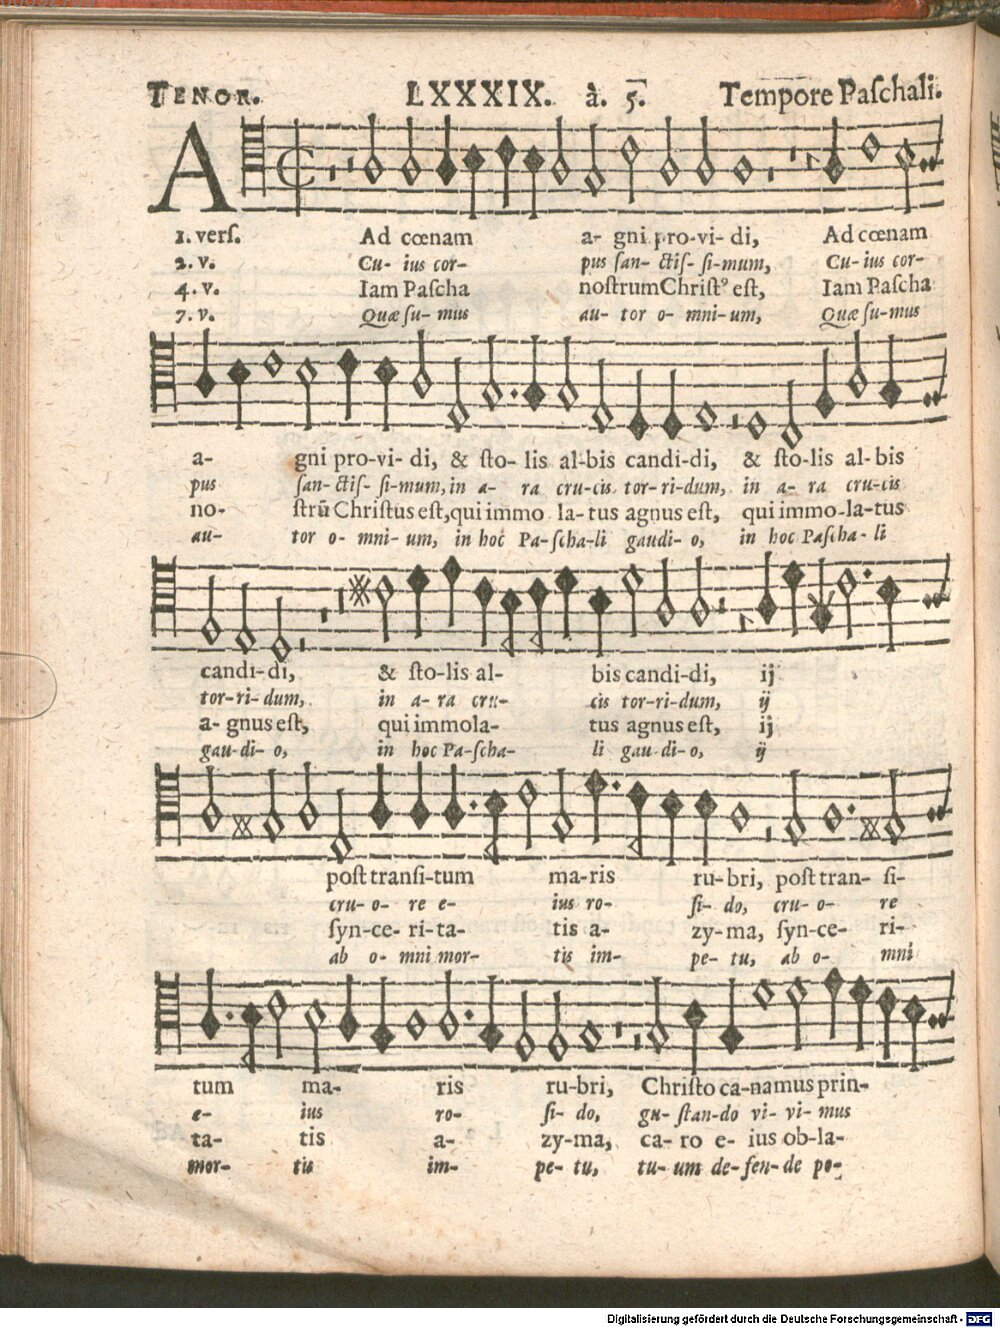 TENOR. LXXXIX. à. 5. Tempore Paſchali.
A
1. verſ. Ad cœnam a- gni pro-vi- di, Ad cœnam
2. v. Cu- ius cor- pus ſan- ctiſ- ſi-mum, Cu- ius cor-
4. v. Iam Paſcha noſtrum Chriſtꝰ eſt, Iam Paſcha
7. v. Quæ ſu- mus au- tor o- mni-um, Quæ ſu-mus
a- gni pro-vi- di, & ſto- lis al-bis candi-di, & ſto-lis al-bis
pus ſan- ctiſ- ſi-mum, in a- ra cru-cis tor-ri-dum, in a- ra cru-cis
no- ſtrũ Chriſtus eſt, qui immo la-tus agnus eſt, qui immo-la-tus
au- tor o- mni- um, in hoc Pa-ſcha-li gaudi-o, in hoc Paſcha-li
candi-di, & ſto-lis al- bis candi-di, ij
tor-ri-dum, in a- ra cru- cis tor-ri-dum, ij
a- gnus eſt, qui immola- tus agnus eſt, ij
gau-di- o, in hoc Pa-ſcha- li gau-di-o, ij
poſt tranſi-tum ma-ris ru-bri, poſt tran- ſi-
cru- o- re e- ius ro- ſi- do, cru- o- re
ſyn-ce- ri-ta- tis a- zy-ma, ſyn-ce- ri-
ab o- mni mor- tis im- pe- tu, ab o- mni
tum ma- ris ru-bri, Chriſto ca-namus prin-
e- ius ro- ſi- do, gu- ſtan-do vi- vi- mus
ta- tis a- zy-ma, ca- ro e- ius ob-la-
mor- tis im- pe- tu, tu- um de-fen-de po-
Digitalisierung gefördert durch die Deutsche Forschungsgemeinschaft - DFG